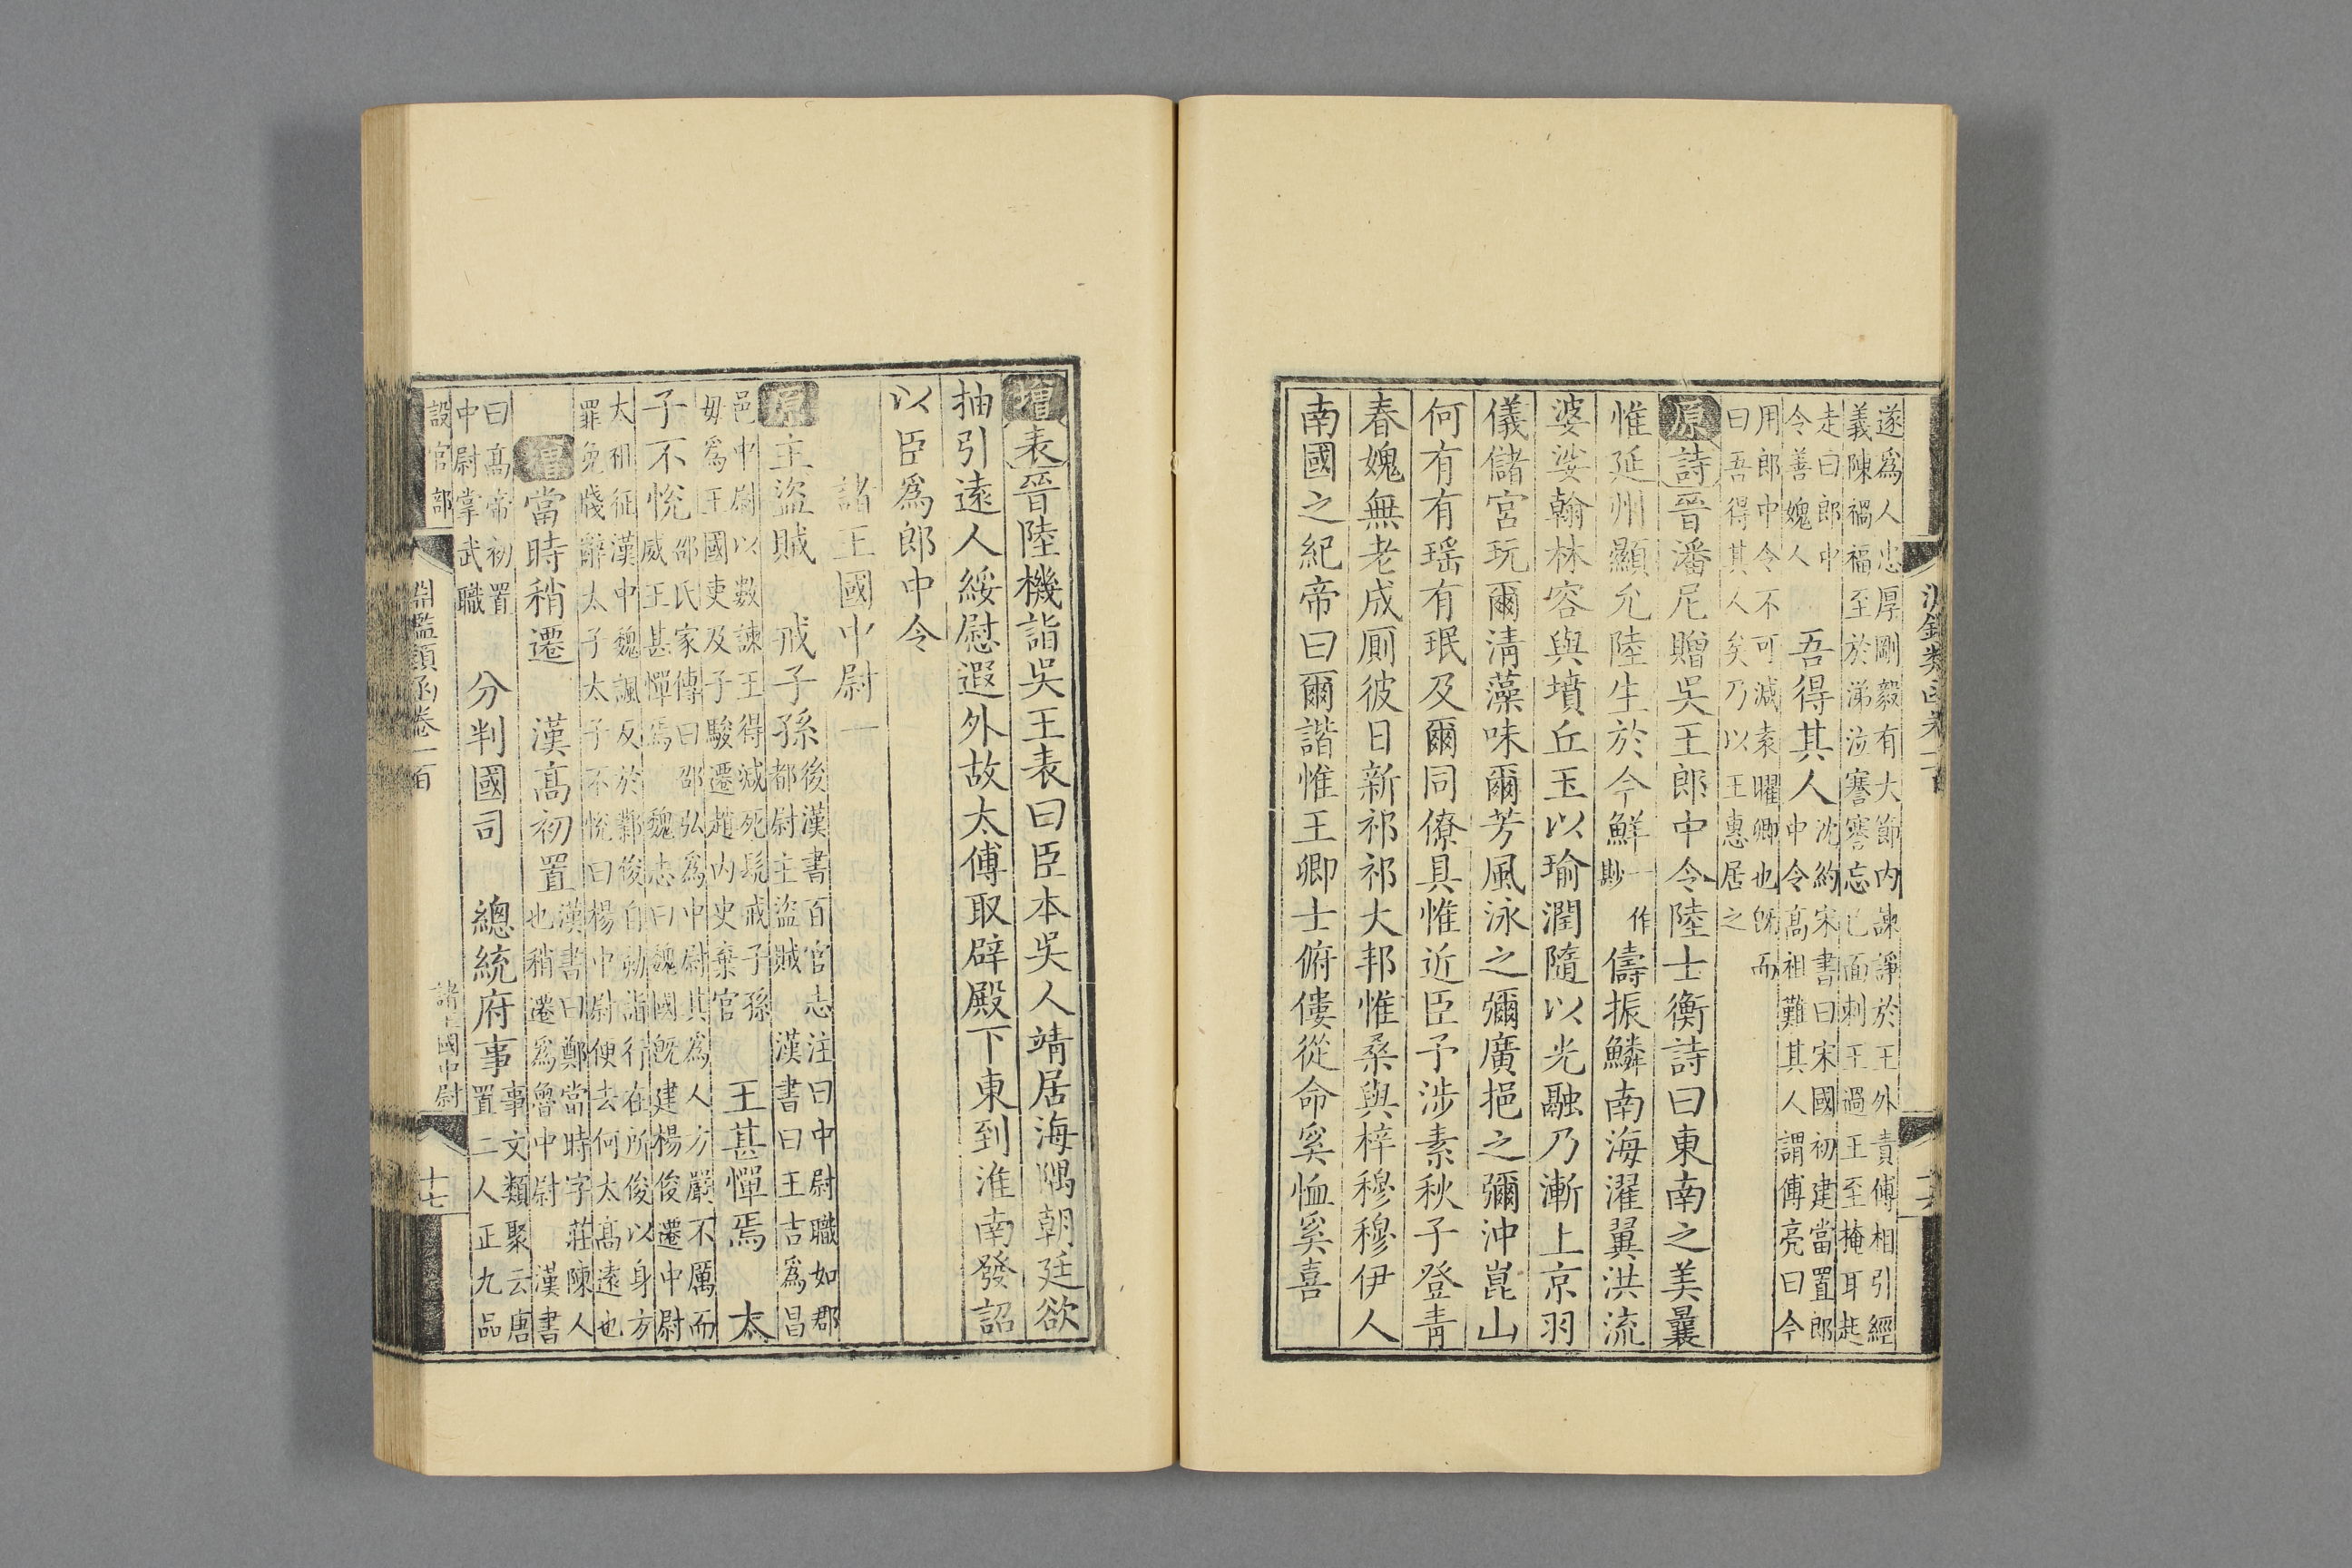 遂爲人忠厚剛毅有大節内諫諍於王外責傅相引經
義陳禍福至於涕泣謇謇忘已面刺王過王至掩耳起
走曰郎中
令善媿人
吾得其人
沈約宋書曰宋國初建當置郎
中令高祖難其人謂傅亮曰今
用郎中令不可減袁曜卿也旣而
曰吾得其人矣乃以王惠居之
原詩晉潘尼贈吳王郎中令陸士衡詩曰東南之美曩
惟延州顯允陸生於今鮮一作尠儔振鱗南海濯翼洪流
婆娑翰林容與墳丘玉以瑜潤隨以光融乃漸上京羽
儀儲宮玩爾清藻味爾芳風泳之彌廣挹之彌沖崑山
何有有瑤有珉及爾同僚具惟近臣予涉素秋子登青
春媿無老成厠彼日新祁祁大邦惟桑與梓穆穆伊人
南國之紀帝曰爾諧惟王卿士俯僂從命奚恤奚喜
增表晉陸機詣吳王表曰臣本吳人靖居海隅朝廷欲
抽引遠人綏慰遐外故太傅取辟殿下東到淮南發詔
以臣爲郎中令
諸王國中尉一
原主盜賊
後漢書百官志注曰中尉職如郡
都尉主盜賊
戒子孫
漢書曰王吉爲昌
邑中尉以數諫王得減死髡戒子孫
毋爲王國吏及子駿遷趙内史棄官
王甚憚焉
邵氏家傳曰邵弘爲中尉其爲人方嚴不厲而
威王甚憚焉
太子不悅
魏志曰魏國旣建楊俊遷中尉
太祖征漢中魏諷反於鄴俊自劾詣行在所俊以身方
罪免牋辭太子太子不悅曰楊中尉便去何太高遠也
增當時稍遷
漢書曰鄭當時字莊陳人
也稍遷爲魯中尉
漢高初置
漢書
曰高帝初置
中尉掌武職
分判國司
總統府事
事文類聚云唐
置二人正九品
設官部
淵鑑類函卷一百
諸王國中尉
十七